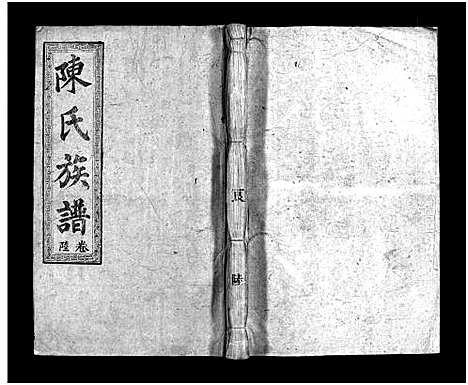 陳氏族譜
卷陸
陸